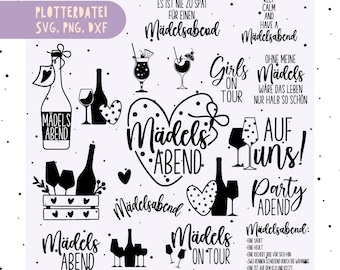 PLOTTERDATEI
SVG, PNG, DXF
ES IST NIE ZU SPÄT
FÜR EINEN
Mädelsabend
CALM
AND
HAVE A
Mädelsabend
Girls
ON
TOUR
OHNE MEINE
Mädels
WÄRE DAS LEBEN
NUR HALB SO SCHÖN
MÄDELS
ABEND
Mädels
ABEND
AUF
uns!
Mädelsabend
Party
ADEND
Mädels
ABEND
Mädels
ON TOUR
Mädelsabend:
-EINE SÄUFT
-EINE HEULT